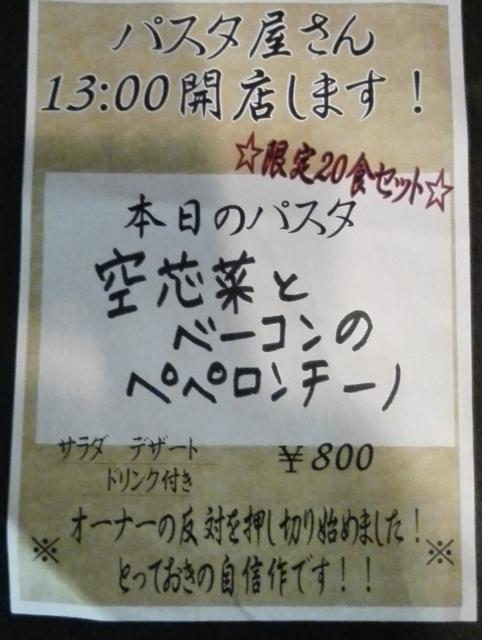 パスタ屋さん
13:00開店します！
☆限定20食セット☆
本日のパスタ
空芯菜と
ベーコンの
ペペロンチーノ
サラダ　デザート
ドリンク付き
￥800
オーナーの反対を押し切り始めました！
※　とっておきの自信作です！！　※